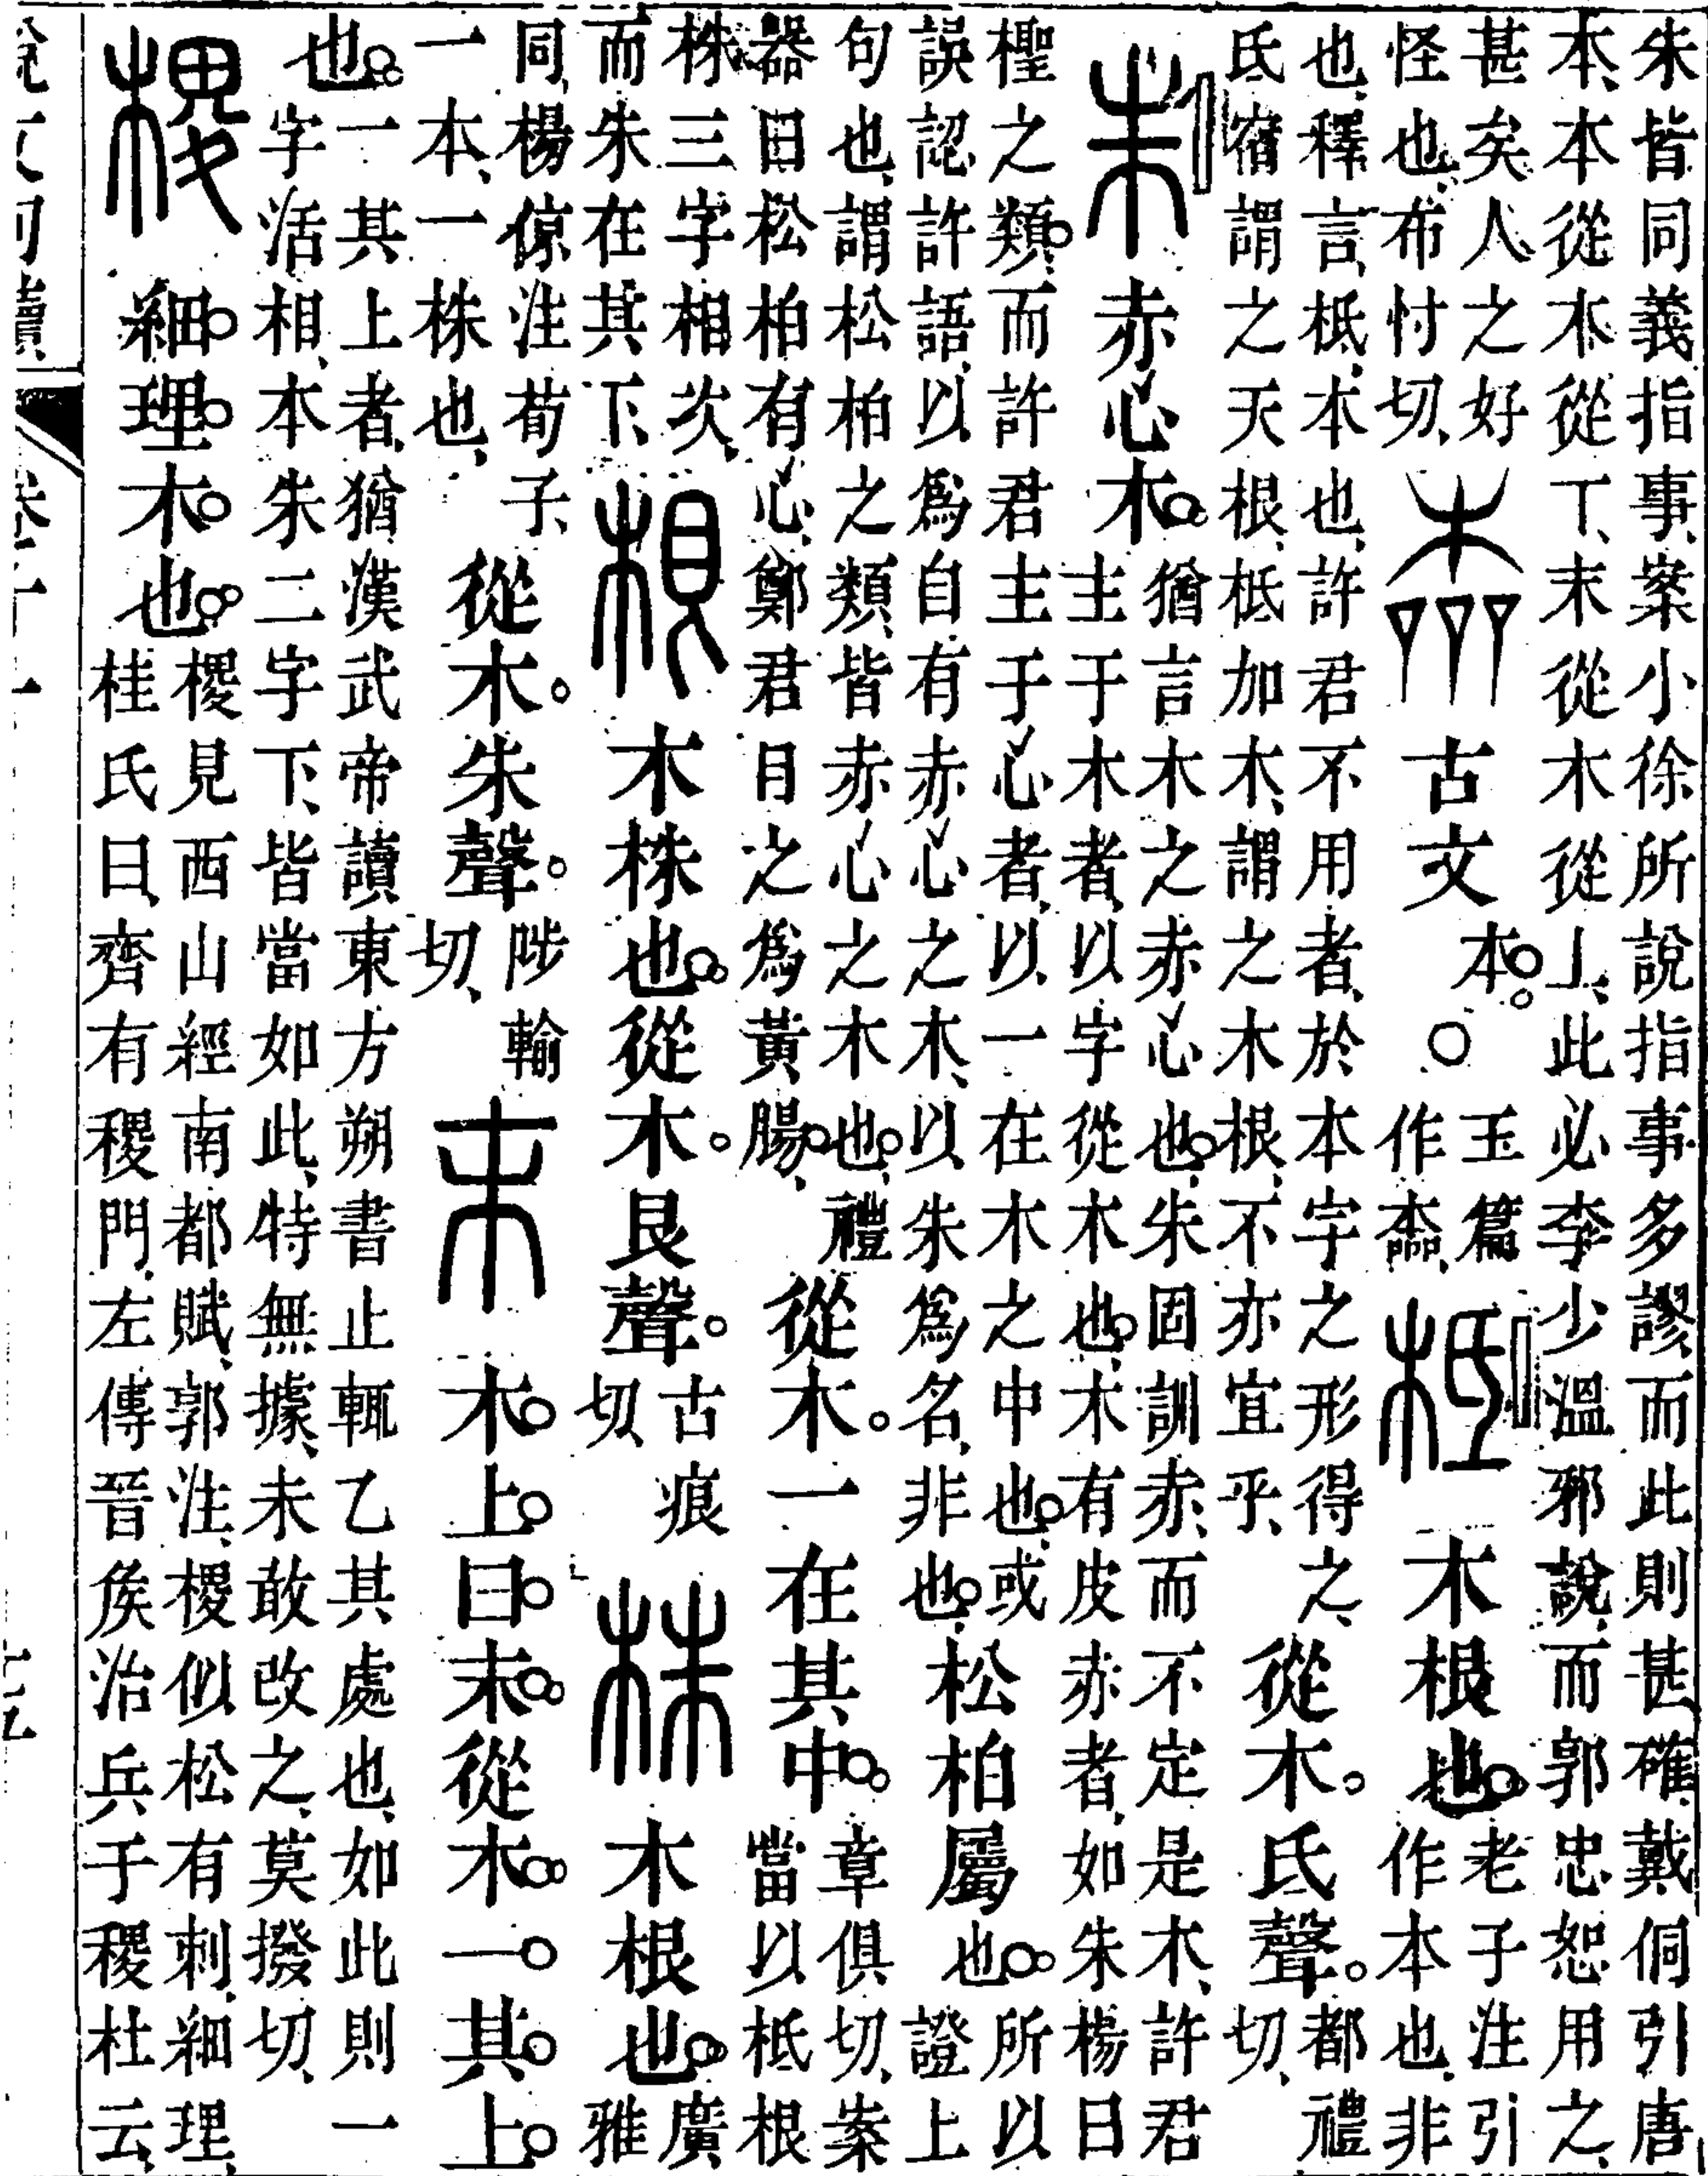 朱皆同義指事案小徐所說指事多謬而此則甚確戴侗引唐
本本從木從丅末從木從丄此必李少溫邪說而郭忠恕用之
甚矣人之好
怪也布忖切
古文本。○
玉篇
作𣓀
柢 木根也。
老子注引
作本也非
也釋言柢本也許君不用者於本字之形得之
氐宿謂之天根柢加木謂之木根不亦宜乎
從木。氐聲。
都禮
切
朱 赤心木。
猶言木之赤心也朱固訓赤而不定是木許君
主于木者以字從木也木有皮赤者如朱楊曰
檉之類而許君主于心者以一在木之中也或
誤認許語以爲自有赤心之木以朱爲名非也
松柏屬也。
所以
證上
句也謂松柏之類皆赤心之木也禮
器曰松柏有心鄭君目之爲黃腸
從木。一在其中。
章俱切案
當以柢根
株三字相次
而朱在其下
根 木株也。從木。艮聲。
古痕
切
株 木根也。
廣
雅
同楊倞注荀子
一本一株也
從木。朱聲。
陟輸
切
末 木上曰末。從木。一其上
也。
一其上者猶漢武帝讀東方朔書止輒乙其處也如此則一
字活相本朱二字下皆當如此特無據未敢改之莫撥切
㮨 細理木也。
㮨見西山經南都賦郭注㮨似松有刺細理
桂氏曰齊有稷門左傳晉矦治兵于稷杜云